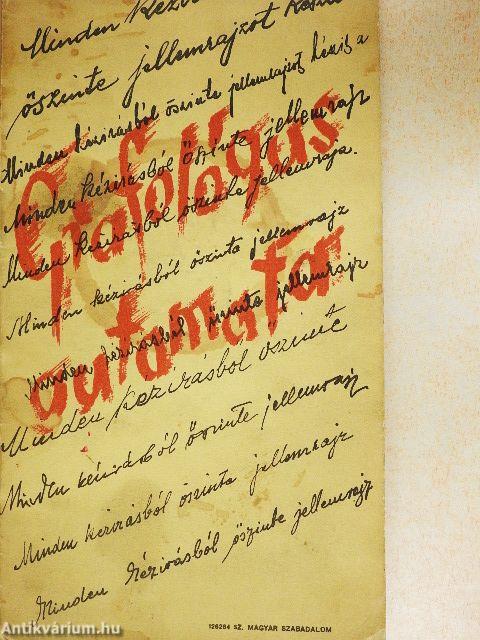 Minden kézi
őszinte jellemrajzot készí
Minden kézirásból őszinte jellemrajzot készít a
Grafológus
Minden kézirásból őszinte jellemrajz
Minden kézirásból őszinte jellemrajz.
Minden kézirásból őszinte jellemrajz
automata
Minden kézirásból őszinte jellemrajz
Minden kézirásból őszinte
Minden kézirásból őszinte jellemrajz
Minden kézirásból őszinte jellemrajz
Minden kézirásból őszinte jellemrajz
126284 SZ. MAGYAR SZABADALOM
Antikvárium.hu